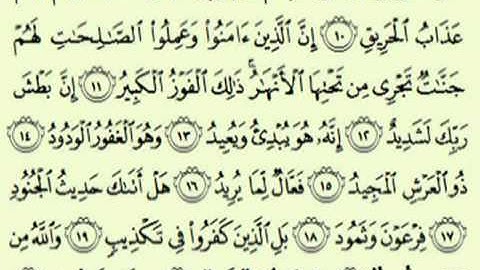 عَذَابُ ٱلْحَرِيقِ ۝١٠ إِنَّ ٱلَّذِينَ ءَامَنُوا۟ وَعَمِلُوا۟ ٱلصَّـٰلِحَـٰتِ لَهُمْ
جَنَّـٰتٌ تَجْرِى مِن تَحْتِهَا ٱلْأَنْهَـٰرُ ۚ ذَٰلِكَ ٱلْفَوْزُ ٱلْكَبِيرُ ۝١١ إِنَّ بَطْشَ
رَبِّكَ لَشَدِيدٌ ۝١٢ إِنَّهُۥ هُوَ يُبْدِئُ وَيُعِيدُ ۝١٣ وَهُوَ ٱلْغَفُورُ ٱلْوَدُودُ ۝١٤
ذُو ٱلْعَرْشِ ٱلْمَجِيدُ ۝١٥ فَعَّالٌ لِّمَا يُرِيدُ ۝١٦ هَلْ أَتَىٰكَ حَدِيثُ ٱلْجُنُودِ
۝١٧ فِرْعَوْنَ وَثَمُودَ ۝١٨ بَلِ ٱلَّذِينَ كَفَرُوا۟ فِى تَكْذِيبٍ ۝١٩ وَٱللَّهُ مِن